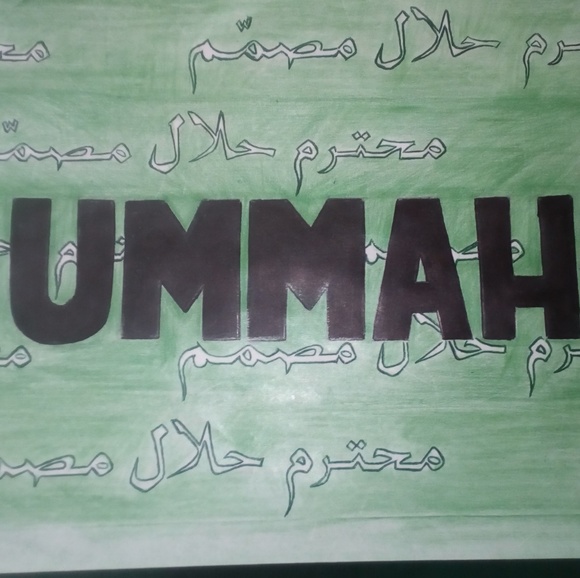 محترم حلال مصمّم
محترم حلال مصمّ
UMMAH
محترم حلال مصمم
محترم حلال مصم